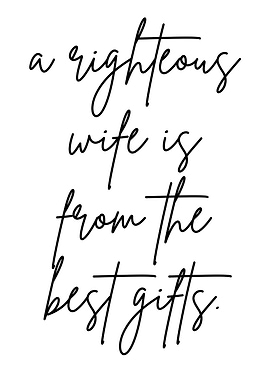 a righteous
wife is
from the
best gifts.